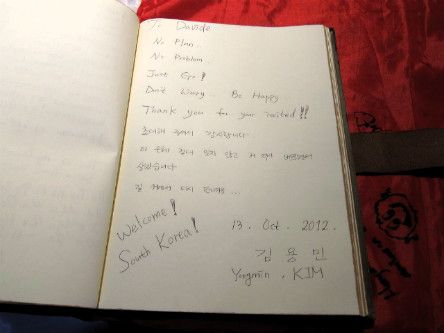 To Davide
No Plan..
No Problem
Just Go!
Don't Worry.. Be Happy..
Thank you for your invited!!
초대해 주셔서 감사합니다.
이
잊지 않고
살겠습니다
길 위에서 다시 만나기를 ...
Welcome!
South Korea!
13. Oct. 2012.
김 용 민
Yongmin. KIM